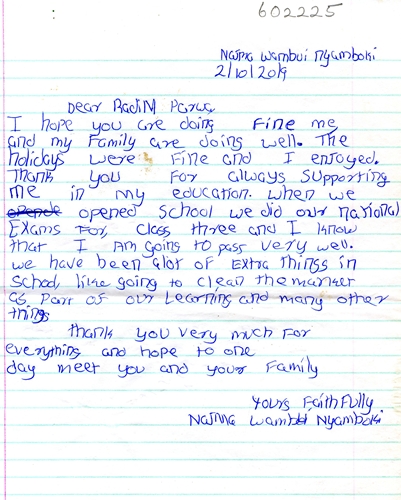 602225
Naima Wambui Nyamboki
2/10/2019
Dear Radim Parva
I hope you are doing Fine me
and my Family are doing well. The
holidays were Fine and I enjoyed.
Thank you For always supporting
me in my education. When we
opened school we did our national
Exams For class three and I know
that I Am going to pass very well.
we have been alot of Extra things in
School like going to clean the market
as part of our Learning and many other
things
thank you very much For
everything and hope to one
day meet you and your Family
Yours Faithfully
Naima Wambui Nyamboki